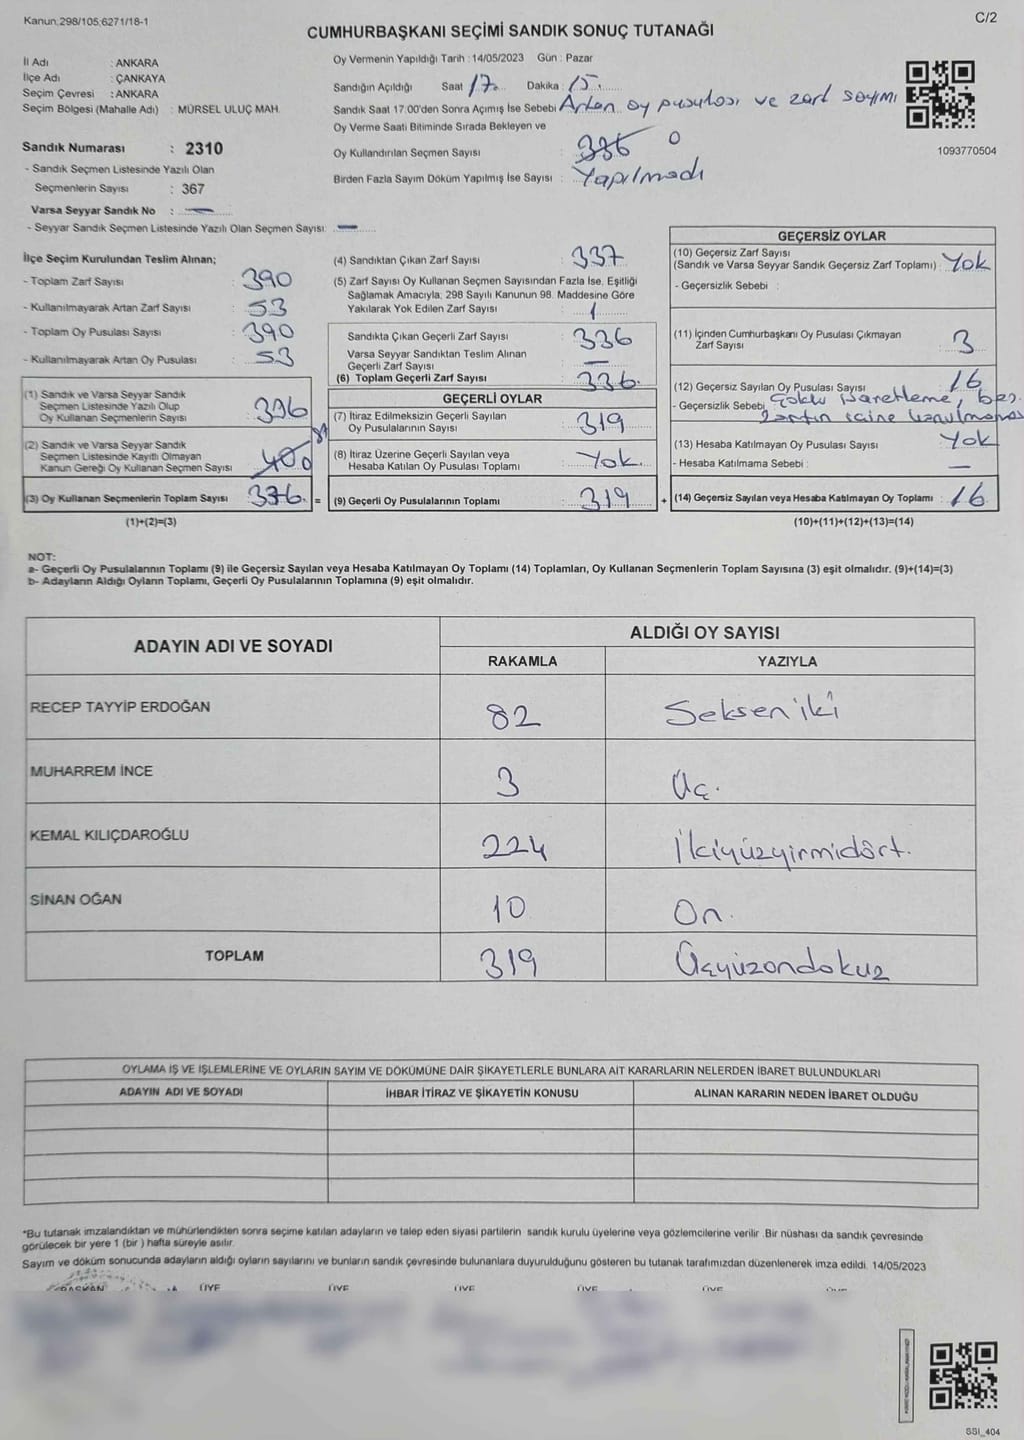 Kanun;298/105;6271/18-1
C/2
CUMHURBAŞKANI SEÇİMİ SANDIK SONUÇ TUTANAĞI
İl Adı : ANKARA
İlçe Adı : ÇANKAYA
Seçim Çevresi : ANKARA
Seçim Bölgesi (Mahalle Adı) : MÜRSEL ULUÇ MAH.
Oy Vermenin Yapıldığı Tarih : 14/05/2023 Gün : Pazar
Sandığın Açıldığı Saat 17 Dakika : 15
Sandık Saat 17:00'den Sonra Açımış İse Sebebi Artan oy pusulası ve zarf sayımı
Oy Verme Saati Bitiminde Sırada Bekleyen ve
Oy Kullandırılan Seçmen Sayısı : 336 0
Birden Fazla Sayım Döküm Yapılmış İse Sayısı : Yapılmadı
1093770504
Sandık Numarası : 2310
- Sandık Seçmen Listesinde Yazılı Olan
Seçmenlerin Sayısı : 367
Varsa Seyyar Sandık No : —
- Seyyar Sandık Seçmen Listesinde Yazılı Olan Seçmen Sayısı: —
İlçe Seçim Kurulundan Teslim Alınan;
- Toplam Zarf Sayısı : 390
- Kullanılmayarak Artan Zarf Sayısı : 53
- Toplam Oy Pusulası Sayısı : 390
- Kullanılmayarak Artan Oy Pusulası : 53
(1) Sandık ve Varsa Seyyar Sandık
Seçmen Listesinde Yazılı Olup
Oy Kullanan Seçmenlerin Sayısı : 336
(2) Sandık ve Varsa Seyyar Sandık
Seçmen Listesinde Kayıtlı Olmayan
Kanun Gereği Oy Kullanan Seçmen Sayısı
(3) Oy Kullanan Seçmenlerin Toplam Sayısı : 336. =
(1)+(2)=(3)
(4) Sandıktan Çıkan Zarf Sayısı : 337
(5) Zarf Sayısı Oy Kullanan Seçmen Sayısından Fazla İse, Eşitliği
Sağlamak Amacıyla; 298 Sayılı Kanunun 98. Maddesine Göre
Yakılarak Yok Edilen Zarf Sayısı : 1
Sandıkta Çıkan Geçerli Zarf Sayısı : 336
Varsa Seyyar Sandıktan Teslim Alınan
Geçerli Zarf Sayısı : —
(6) Toplam Geçerli Zarf Sayısı : 336.
GEÇERLİ OYLAR
(7) İtiraz Edilmeksizin Geçerli Sayılan
Oy Pusulalarının Sayısı : 319
(8) İtiraz Üzerine Geçerli Sayılan veya
Hesaba Katılan Oy Pusulası Toplamı : Yok.
(9) Geçerli Oy Pusulalarının Toplamı : 319 +
GEÇERSİZ OYLAR
(10) Geçersiz Zarf Sayısı
(Sandık ve Varsa Seyyar Sandık Geçersiz Zarf Toplamı) : Yok
- Geçersizlik Sebebi :
(11) İçinden Cumhurbaşkanı Oy Pusulası Çıkmayan
Zarf Sayısı : 3
(12) Geçersiz Sayılan Oy Pusulası Sayısı : 16
- Geçersizlik Sebebi Çoklu işaretleme, boş.
zarfın içine konulmaması
(13) Hesaba Katılmayan Oy Pusulası Sayısı : Yok
- Hesaba Katılmama Sebebi : —
(14) Geçersiz Sayılan veya Hesaba Katılmayan Oy Toplamı : 16
(10)+(11)+(12)+(13)=(14)
NOT:
a- Geçerli Oy Pusulalarının Toplamı (9) ile Geçersiz Sayılan veya Hesaba Katılmayan Oy Toplamı (14) Toplamları, Oy Kullanan Seçmenlerin Toplam Sayısına (3) eşit olmalıdır. (9)+(14)=(3)
b- Adayların Aldığı Oyların Toplamı, Geçerli Oy Pusulalarının Toplamına (9) eşit olmalıdır.
ADAYIN ADI VE SOYADI
ALDIĞI OY SAYISI
RAKAMLA YAZIYLA
RECEP TAYYİP ERDOĞAN 82 Seksen iki
MUHARREM İNCE 3 Üç.
KEMAL KILIÇDAROĞLU 224 İkiyüzyirmidört.
SİNAN OĞAN 10 On.
TOPLAM 319 Üçyüzondokuz
OYLAMA İŞ VE İŞLEMLERİNE VE OYLARIN SAYIM VE DÖKÜMÜNE DAİR ŞİKAYETLERLE BUNLARA AİT KARARLARIN NELERDEN İBARET BULUNDUKLARI
ADAYIN ADI VE SOYADI İHBAR İTİRAZ VE ŞİKAYETİN KONUSU ALINAN KARARIN NEDEN İBARET OLDUĞU
*Bu tutanak imzalandıktan ve mühürlendikten sonra seçime katılan adayların ve talep eden siyasi partilerin sandık kurulu üyelerine veya gözlemcilerine verilir .Bir nüshası da sandık çevresinde
görülecek bir yere 1 (bir ) hafta süreyle asılır.
Sayım ve döküm sonucunda adayların aldığı oyların sayılarını ve bunların sandık çevresinde bulunanlara duyurulduğunu gösteren bu tutanak tarafımızdan düzenlenerek imza edildi. 14/05/2023
BAŞKAN ÜYE ÜYE ÜYE ÜYE ÜYE
SSI_404